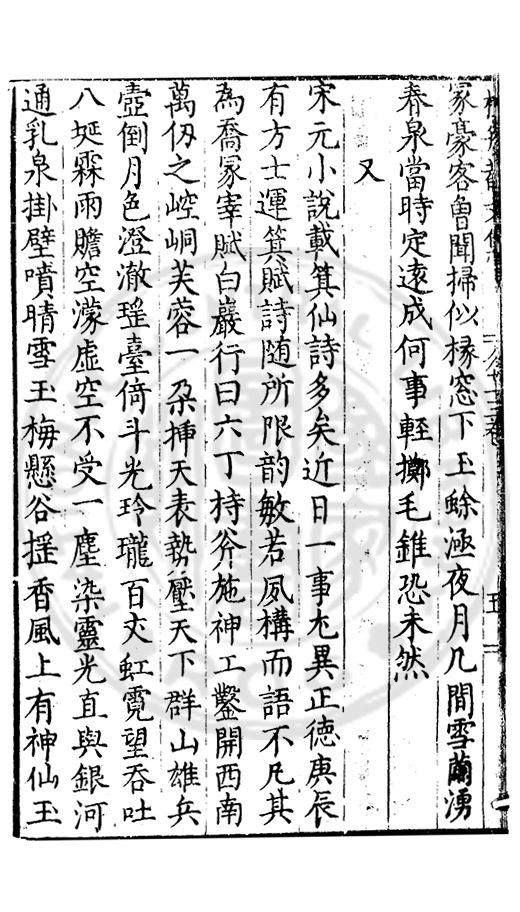 冢豪客魯聞掃似椽窓下玉蜍涵夜月几間雪薾湧
春泉當時定遠成何事輕擲毛錐恐未然
又
宋元小說載箕仙詩多矣近日一事尤異正德庚辰
有方士運箕賦詩随所限韵敏若夙構而語不凡其
為喬冡宰賦白巖行曰六丁持斧施神工鑿開西南
萬仭之崆峒芙蓉一朶揷天表勢壓天下群山雄兵
壺倒月色澄澈瑶臺倚斗光玲瓏百丈虹霓望吞吐
八埏霖雨瞻空濛虛空不受一塵染靈光直與銀河
通乳泉掛壁噴晴雪玉梅懸谷摇香風上有神仙玉